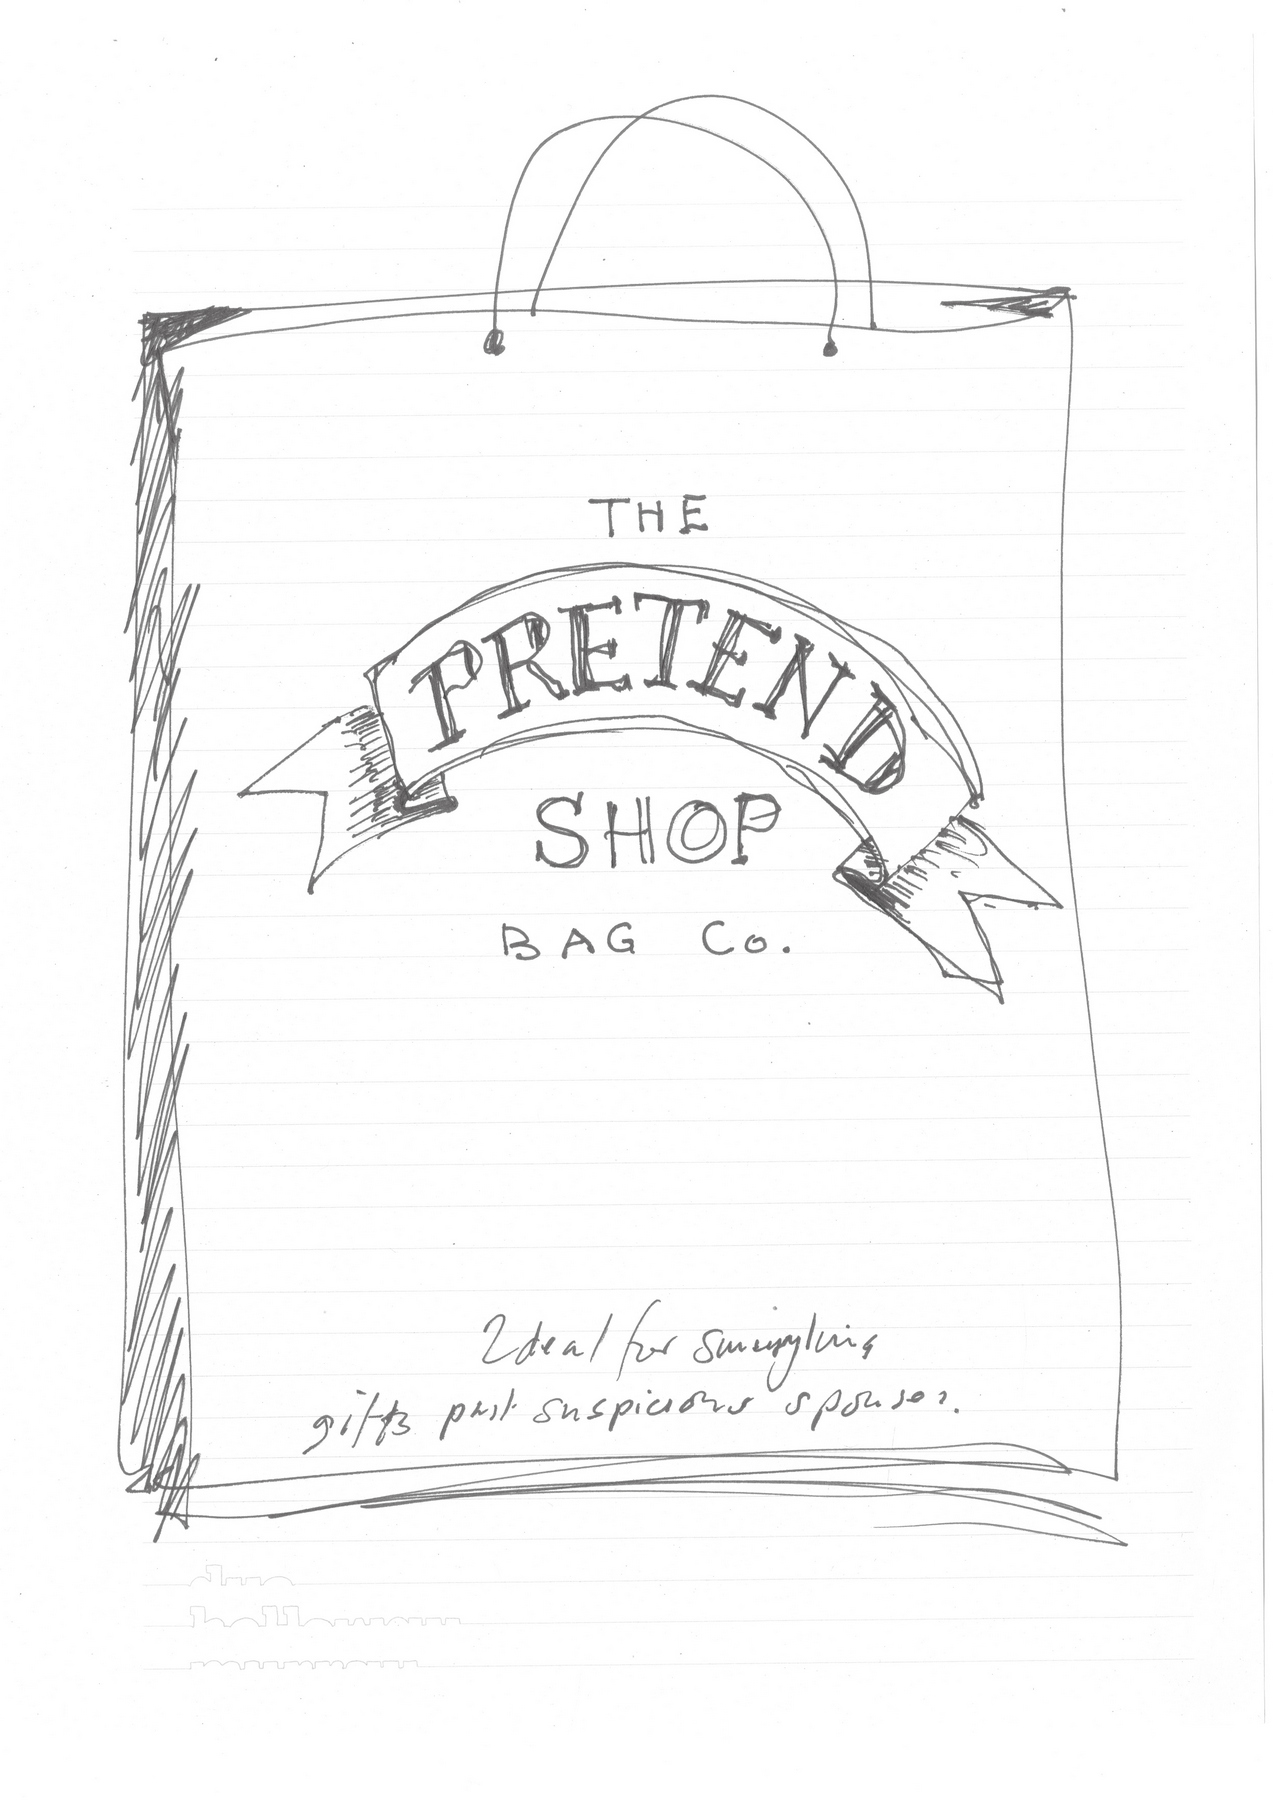 THE
PRETEND
SHOP
BAG Co.
Ideal for smuggling
gifts past suspicious spouses.